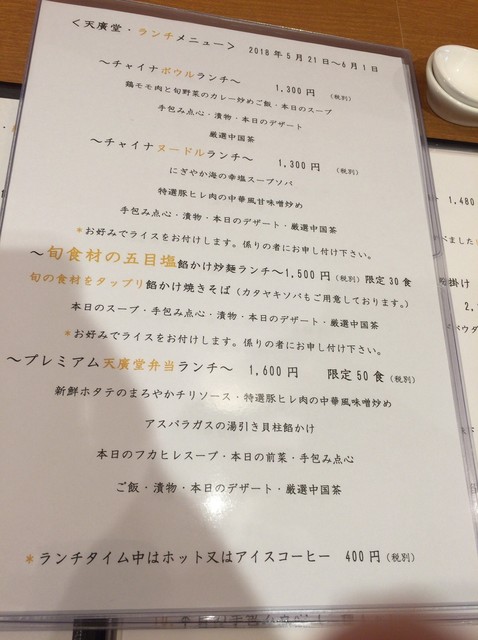 ＜天廣堂・ランチメニュー＞ 2018年5月21日～6月1日
～チャイナボウルランチ～ 1,300円 (税別)
鶏モモ肉と旬野菜のカレー炒めご飯・本日のスープ
手包み点心・漬物・本日のデザート
厳選中国茶
～チャイナヌードルランチ～ 1,300円 (税別)
にぎやか海の幸塩スープソバ
特選豚ヒレ肉の中華風甘味噌炒め
手包み点心・漬物・本日のデザート・厳選中国茶
*お好みでライスをお付けします。係りの者にお申し付け下さい。
～旬食材の五目塩餡かけ炒麺ランチ～1,500円(税別)限定30食
旬の食材をタップリ餡かけ焼きそば(カタヤキソバもご用意しております。)
本日のスープ・手包み点心・漬物・本日のデザート・厳選中国茶
*お好みでライスをお付けします。係りの者にお申し付け下さい。
～プレミアム天廣堂弁当ランチ～ 1,600円 限定50食(税別)
新鮮ホタテのまろやかチリソース・特選豚ヒレ肉の中華風味噌炒め
アスパラガスの湯引き貝柱餡かけ
本日のフカヒレスープ・本日の前菜・手包み点心
ご飯・漬物・本日のデザート・厳選中国茶
*ランチタイム中はホット又はアイスコーヒー 400円(税別)
1,480
掛け